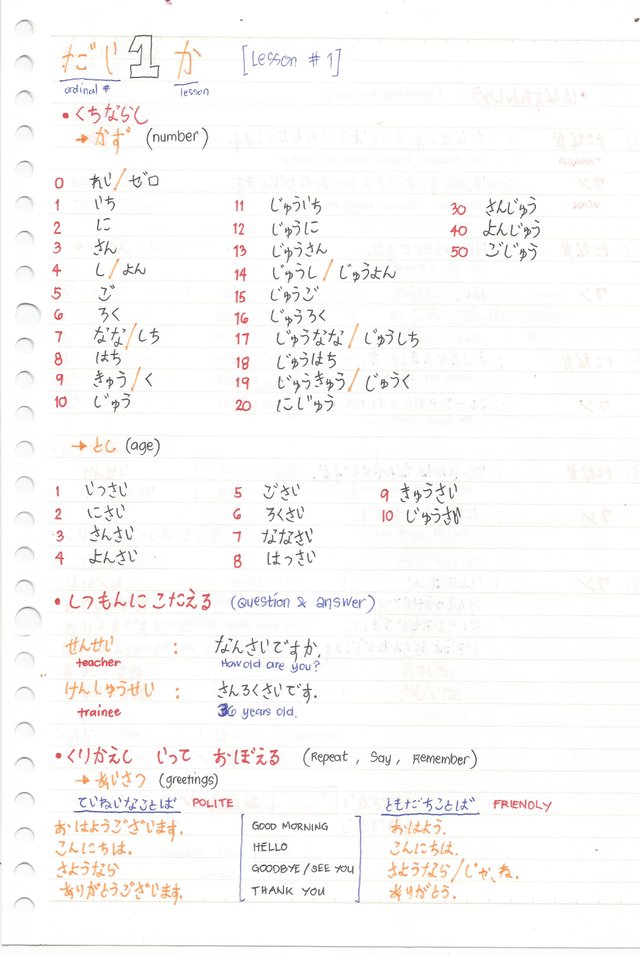 だい 1 か [Lesson # 1]
ordinal # lesson
• くちならし
→ かず (number)
0 れい/ゼロ
1 いち 11 じゅういち 30 さんじゅう
2 に 12 じゅうに 40 よんじゅう
3 さん 13 じゅうさん 50 ごじゅう
4 し/よん 14 じゅうし/じゅうよん
5 ご 15 じゅうご
6 ろく 16 じゅうろく
7 なな/しち 17 じゅうなな/じゅうしち
8 はち 18 じゅうはち
9 きゅう/く 19 じゅうきゅう/じゅうく
10 じゅう 20 にじゅう
→ とし (age)
1 いっさい 5 ごさい 9 きゅうさい
2 にさい 6 ろくさい 10 じゅうさい
3 さんさい 7 ななさい
4 よんさい 8 はっさい
• しつもんに こたえる (Question & answer)
せんせい : なんさいですか.
teacher How old are you?
けんしゅうせい : さんろくさいです.
trainee 36 years old.
• くりかえし いって おぼえる (Repeat, Say, Remember)
→ あいさつ (greetings)
ていねいなことば POLITE ともだちことば FRIENDLY
おはようございます. GOOD MORNING おはよう.
こんにちは. HELLO こんにちは.
さようなら GOODBYE/SEE YOU さようなら/じゃ、ね.
ありがとうございます. THANK YOU ありがとう.